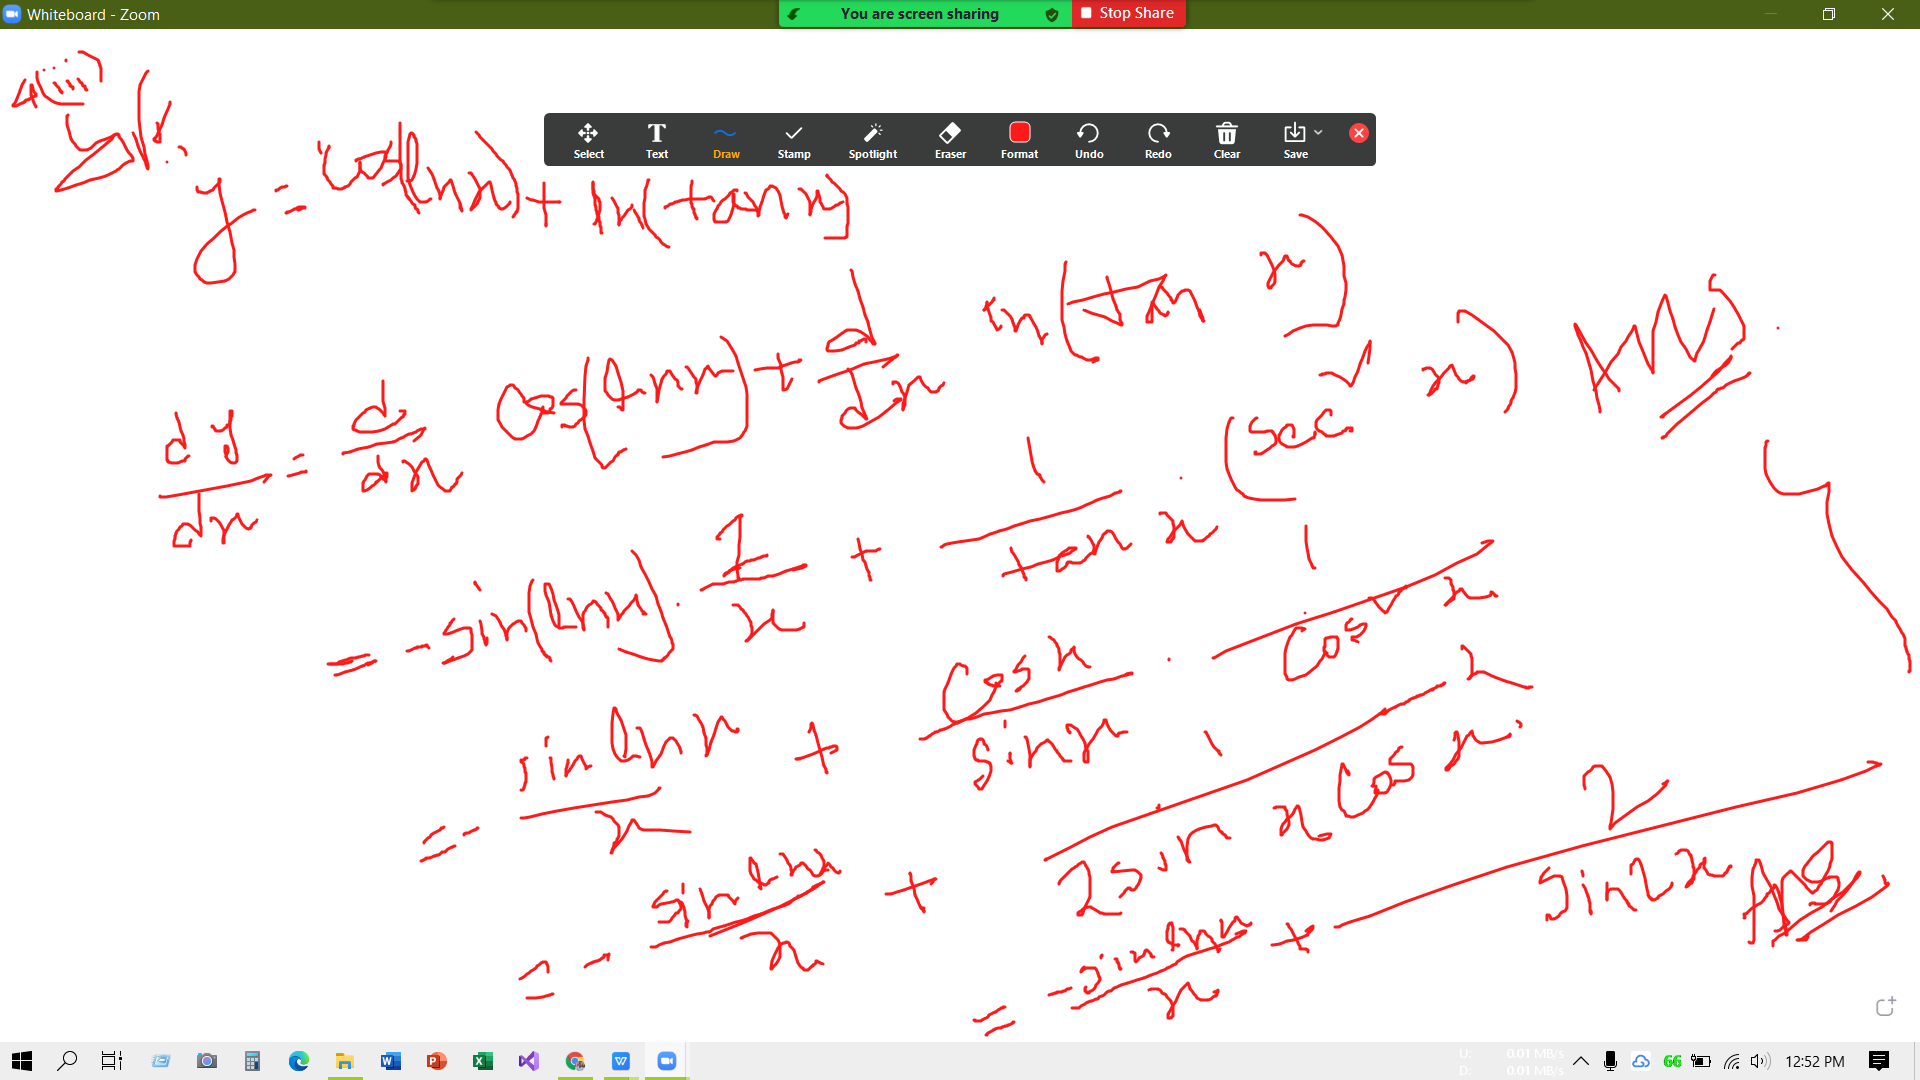 Whiteboard - Zoom
You are screen sharing
Stop Share
Select Text Draw Stamp Spotlight Eraser Format Undo Redo Clear Save
4(iii)
y = cos(lnx) + ln(tanx)
dy/dx = d/dx cos(lnx) + d/dx ln(tan x)
= -sin(lnx) . 1/x + 1/tan x . (sec² x) Ans.
= - sin lnx/x + cosx/sinx . 1/cos² x
= - sin lnx/x + 2/2 sin x cos x
= - sin lnx/x + 2/sin2x Ans
U: 0.01 MB/s
D: 0.01 MB/s
66
12:52 PM